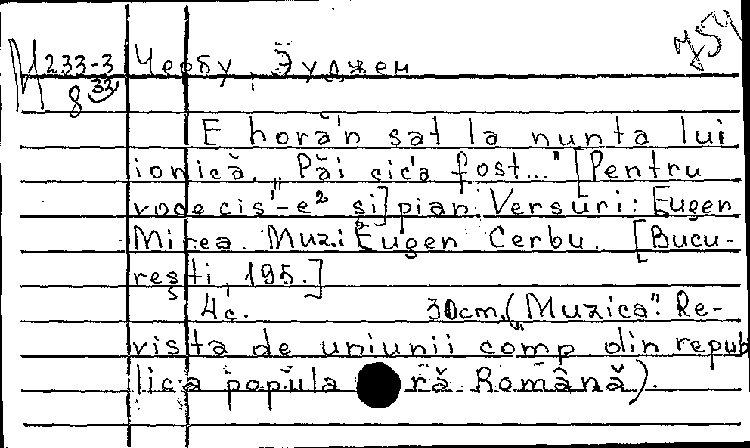 754
И 233-3 Чербу, Эуджен
8 32
E horă'n sat la nunta lui
ionică. „Păi cică fost..." [Pentru
voce cis'-e² și] pian. Versuri: Eugen
Mirea. Muz.: Eugen Cerbu. [Bucu-
rești, 195.]
4c. 30cm. („Muzica". Re-
vista de uniunii comp. din repub
lica popula ră Română).